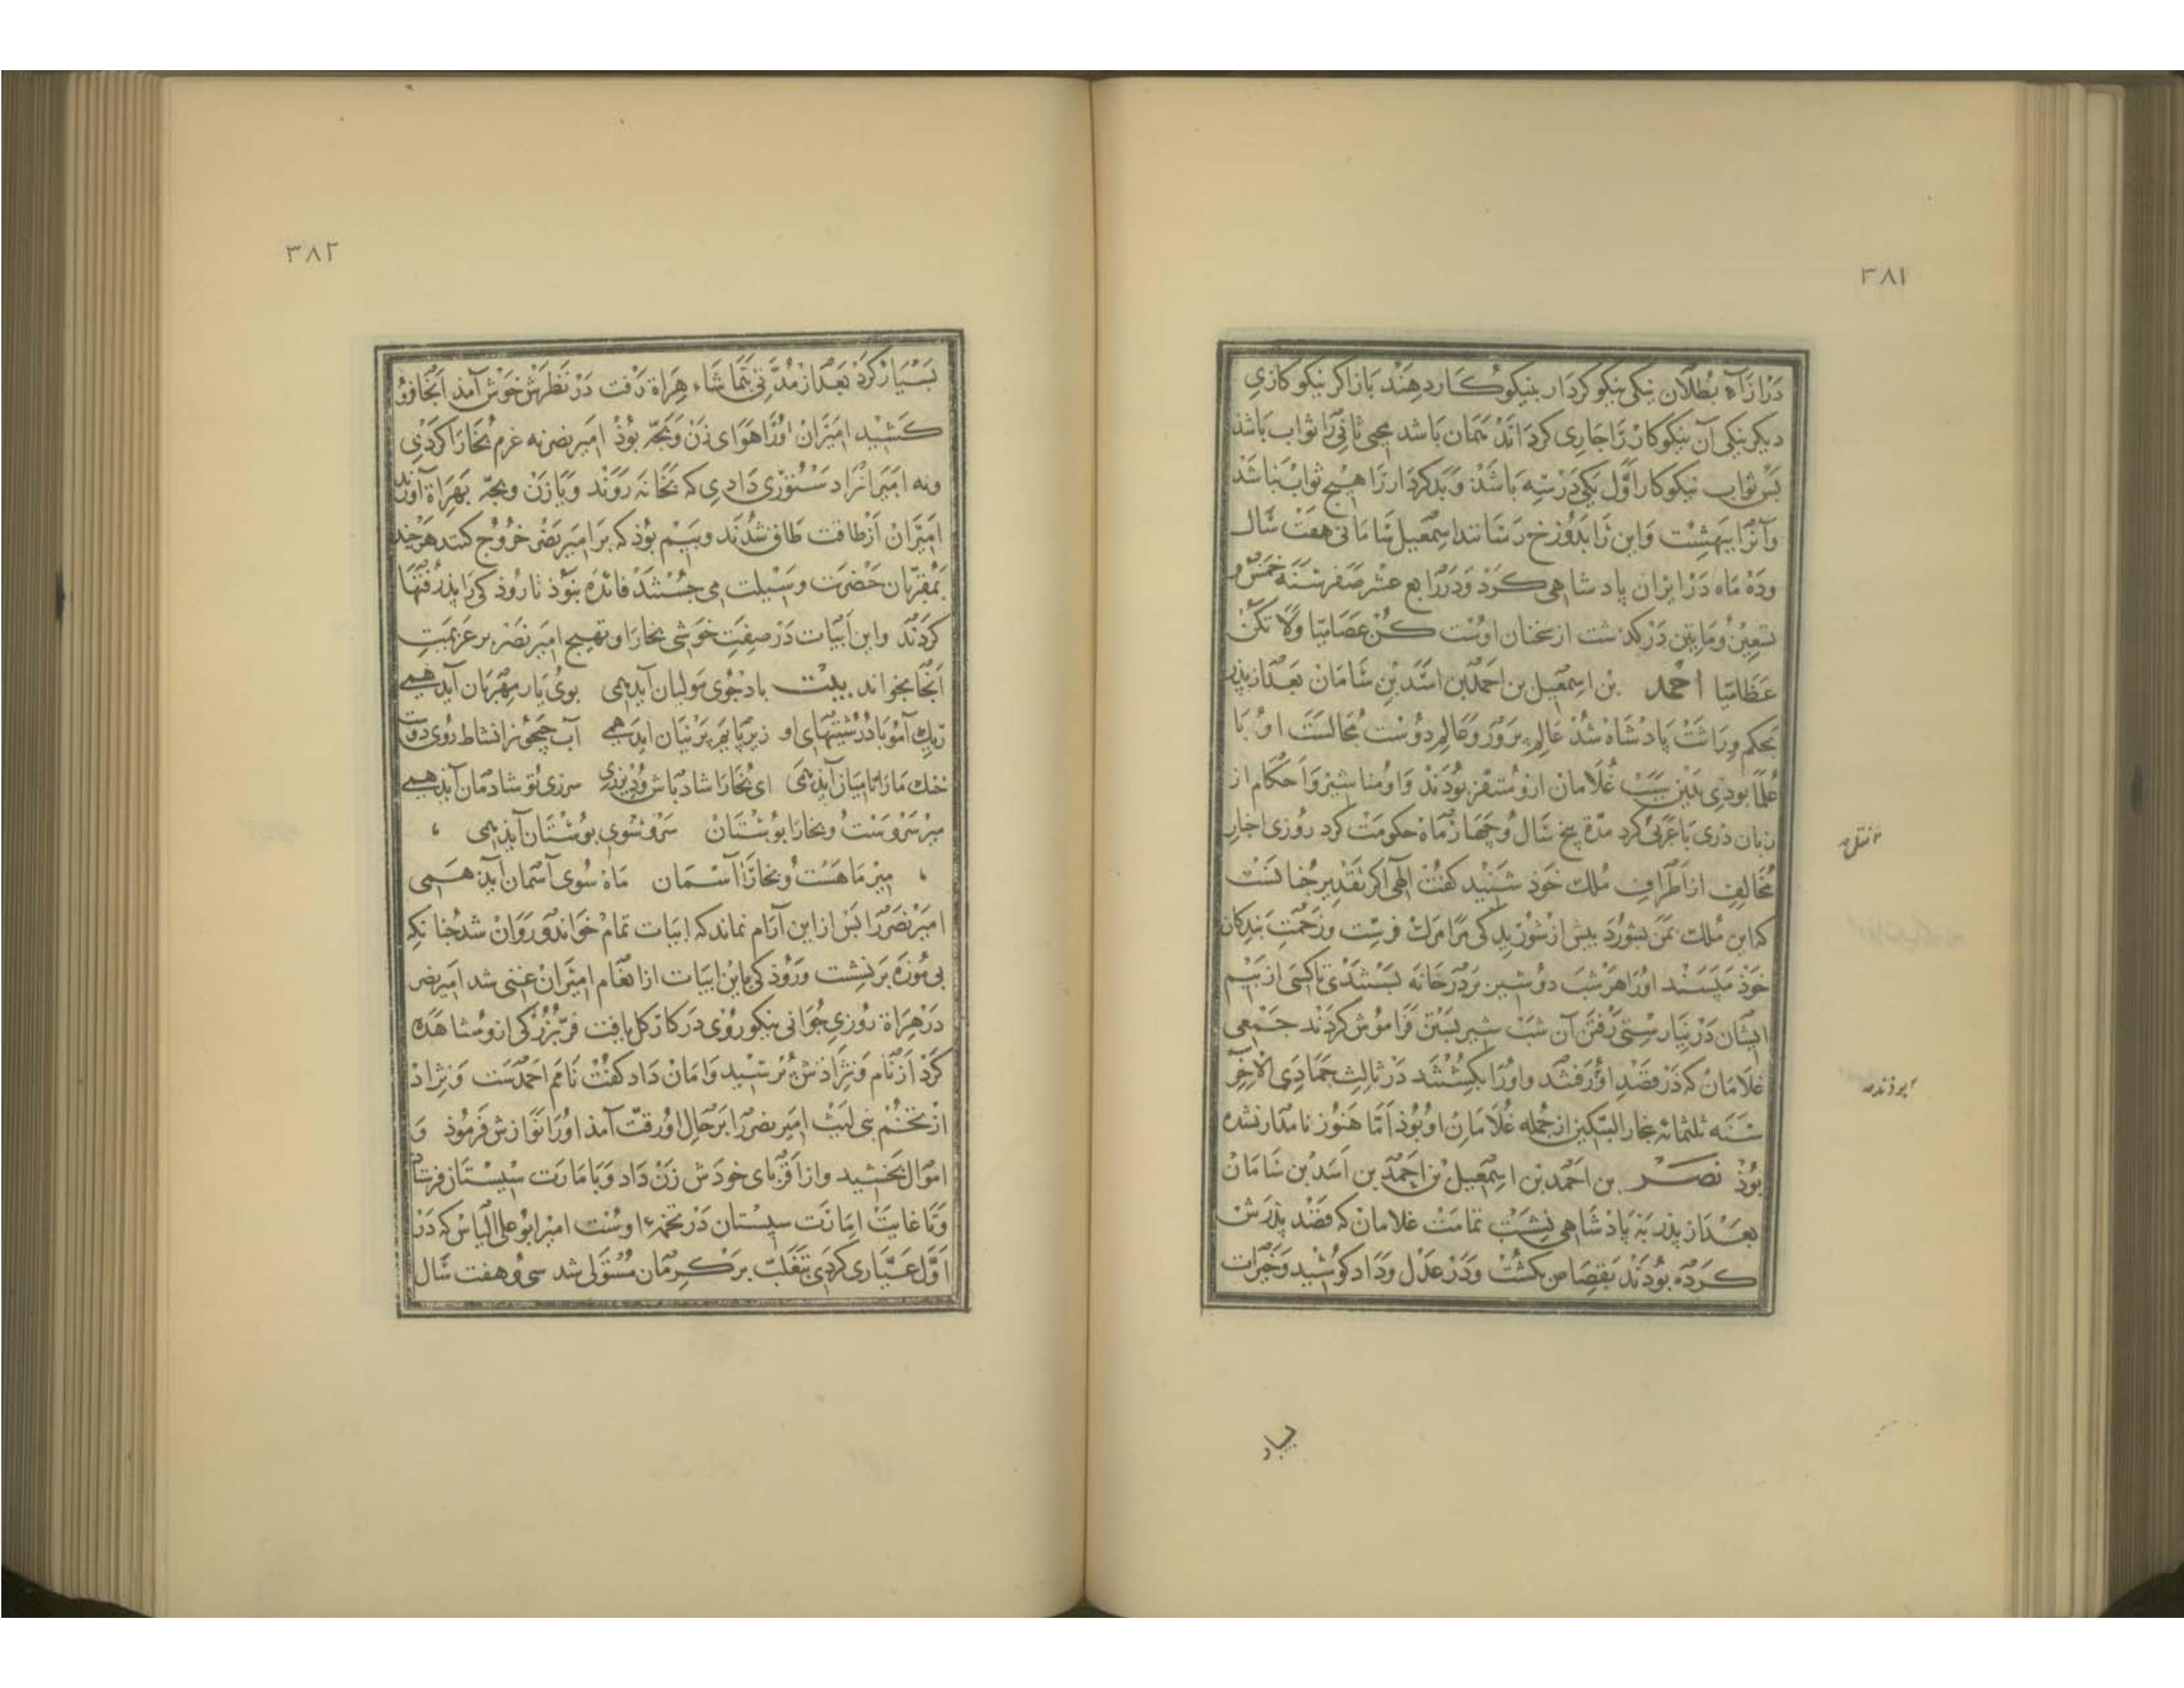 ۳۸۱
دَرازَآءِ بُطلان نیکی نیکو کردار بنیکوکار دهند باز اکر نیکو کاری
دیکر نیکی آن نیکوکار را جاری کرداند همان باشد محیی ثانی را ثواب باشذ
بس ثواب نیکوکار اوّل یکی در سه باشذ و بدکردار را هیچ ثواب نباشذ
وآنرا ببهشت واین را بدوزخ رسانند اسمعیل سامانی هفت سال
وده ماه در ایران پادشاهی کرد و در رابع عشر صفر سنه خمس و
تسعین ومایتین در کذشت از سخنان اوست کن عصامیّا ولا تکن
عظامیّا احمد بن اسمعیل بن احمد بن اسد بن سامان بعد از پذر
بحکم وراثت پادشاه شذ عالم پرور وعالم دوست مجالست او با
علما بوذی بدین سبب غلامان ازو متنفر بودند واو مناشیر واحکام از
زبان دری با عربی کرد مدّة پنج سال وچهار ماه حکومت کرد روزی اخبار
مخالف از اطراف ملک خوذ شنید کفت الهی اکر تقدیر جنانست
که این ملک بمن بشورد بیش از شوریدکی مرا مرک فرست وزحمت بندکان
خوذ مپسند او را هر شب دو شیر بر در خانه بستندی تا کسی از بیم
ایشان در نیارستی رفتن آن شب شیر بستن فراموش کردند جمعی
غلامان که در قصد او رفتند واو را بکشتند در ثالث جمادی الآخر
سنه ثلثمائه بخار البتکین از جمله غلامان او بوذ امّا هنوز نامدار نشده
بوذ نصر بن احمد بن اسمعیل بن احمد بن اسد بن سامان
بعد از پذر به پادشاهی نشست تمامت غلامان که قصد پذرش
کرده بودند بقصاص بکشت ودر عدل وداد کوشید وخیرات
بسیار
۳۸۲
بسیار کرد بعد از مدّتی بتماشاء هراة رفت در نظرش خوش آمذ آنجا فرو
کشید امیران او را هوای زن وبجّه بوذ امیر نصر نه عزم بخارا کردی
ونه امیرانرا دستوری دادی که بخانه روند ویا زن وبجّه بهراة آورند
امیران از طاقت طاق شدند وبیم بوذ که بر امیر نصر خروج کنند هرجند
بمقرّبان حضرت وسیلت می جستند فائده نبوذ تا روذکی را پذرفتها
کردند واین ابیات در صفت خوشی بخارا وتهییج امیر نصر بر عزیمت
آنجا بخواند بیت باد جوی مولیان آید همی بوی یار مهربان آید همی
ریک آمو با درشتیهای او زیر پایم پرنیان آید همی آب جیحون از نشاط روی دوست
خنک ما را تا میان آید همی ای بخارا شاد باش و دیر زی میر زی تو شادمان آید همی
میر سروست وبخارا بوستان سرو سوی بوستان آید همی
میر ماهست وبخارا آسمان ماه سوی آسمان آید همی
امیر نصر را بس از این آرام نماند که ابیات تمام خواند وروان شد جنانکه
بی موزه بر نشست وروذکی باین ابیات از انعام امیران غنی شد امیر نصر
در هراة روزی جوانی نیکو روی در کار کل یافت فرّ بزرکی ازو مشاهده
کرد از نام ونژادش پرسید وامان داد کفت نامم احمدست ونژاد
از تخم بنی لیث امیر نصر را بر حال او رقّت آمذ او را نوازش فرموذ و
اموال بخشید واز اقربای خودش زن داد وبامارت سیستان فرستاد
وتا غایت امارت سیستان در تخمهٔ اوست امیر ابو علی الیاس که در
اوّل عیّاری کردی بتغلّب بر کرمان مستولی شد سی وهفت سال